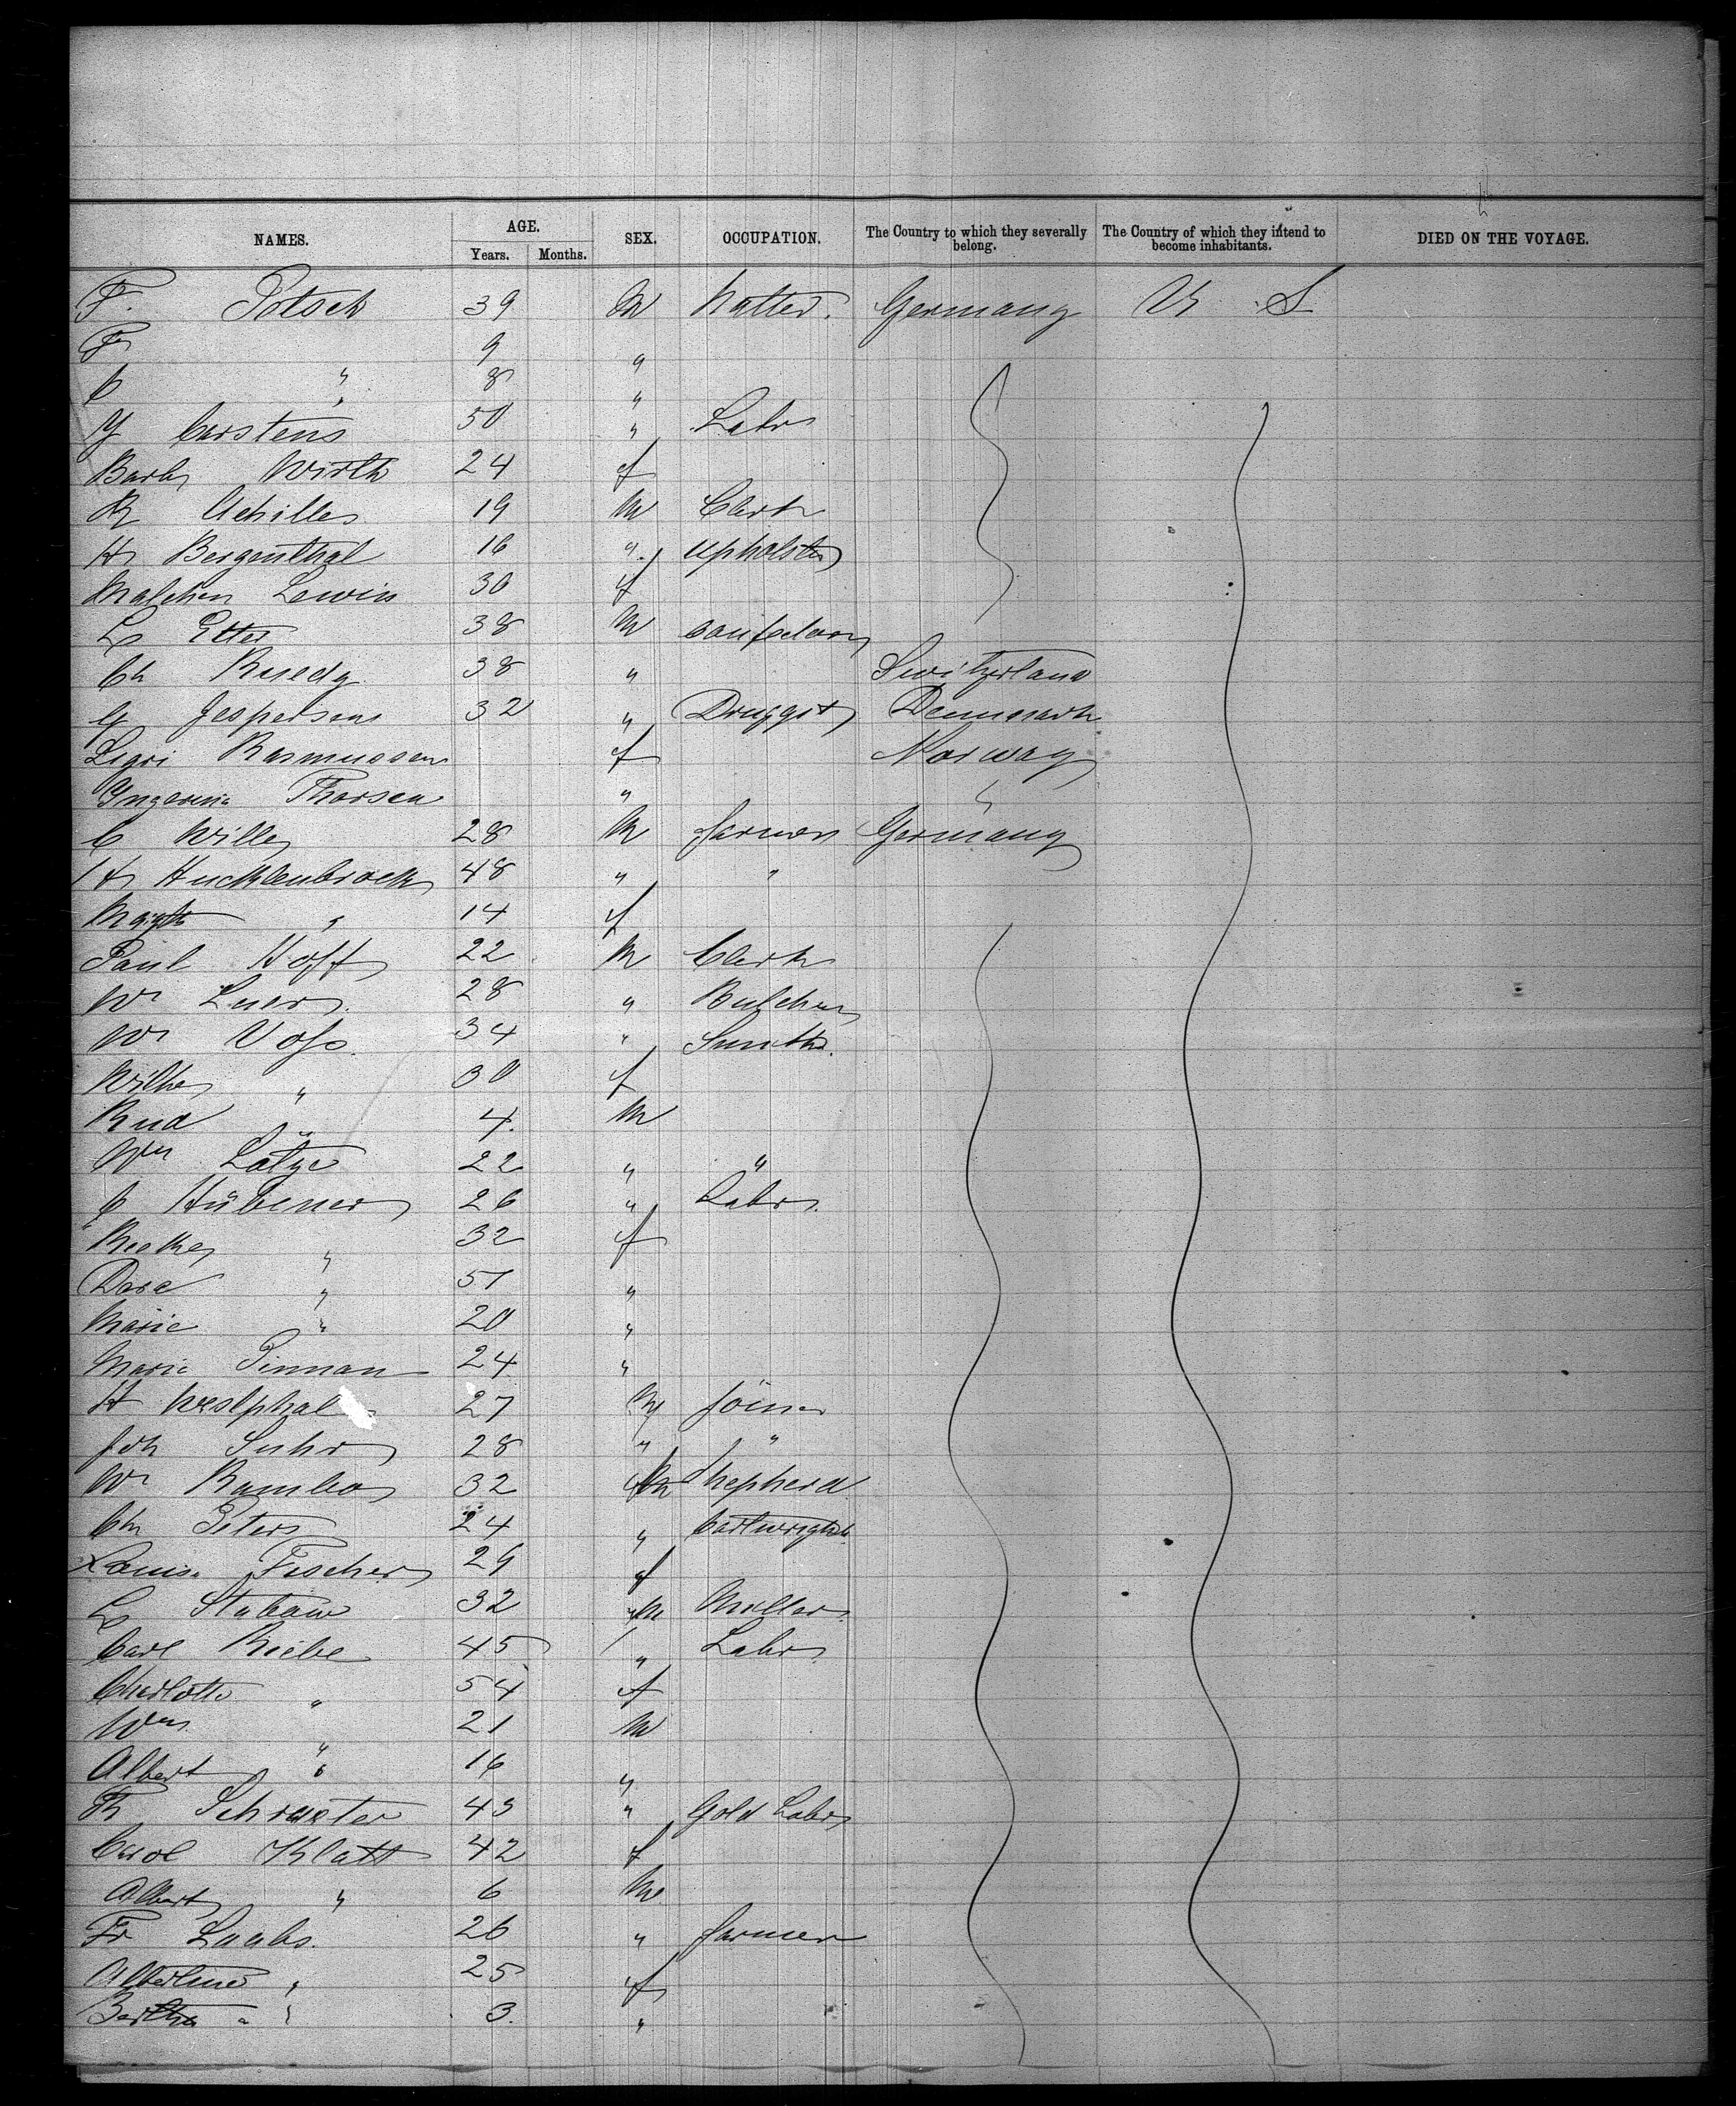 NAMES. AGE. SEX. OCCUPATION. The Country to which they severally belong. The Country of which they intend to become inhabitants. DIED ON THE VOYAGE.
Years. Months.
F. Potsch 39 M Hatter. Germany U S
Fr 9 "
C " 8 "
Y Carstens 50 " Labr
Barb. Wirth 24 f
R Achilles 19 M Clerk
Hr Bergenthal 16 " upholster
Malchen Lewin 30 f
L Etter 38 M
Ch Ruedy 38 " Switzerland
G Jespersen 32 " Druggst Denmark
Rasmussen f Norway
Thorsen " "
C Wille 28 M farmer Germany
Hr Hucklenbrock 48 " "
" 14 f
Paul Hoft 22 M Clerk
Wm Luer 28 " Butcher
Wm Voss 34 " Smith
Wilhe " 30 f
Rud " 4. M
Wm Latze 22 " "
C Hübener 26 " Labr.
" 32 f
Dora " 51 "
Marie " 20 "
Marie Pinnan 24 "
H Westphal 27 M Joiner
Joh Suhr 28 " "
Wm Rambo 32 M Shepherd
Chr Peters 24 " Cartwright
Louise Fischer 29 f
L Stubauw 32 M Miller
Carl Riebe 45 " Labr
Charlotte " 54 f
Wm " 21 M
Albert " 16 "
Th Schroeter 43 " Gold Labr
Carol Klatt 42 f
Albert " 6 M
Fr Laabs. 26 " farmer
Albertine " 25 f
Bertha " 3. "